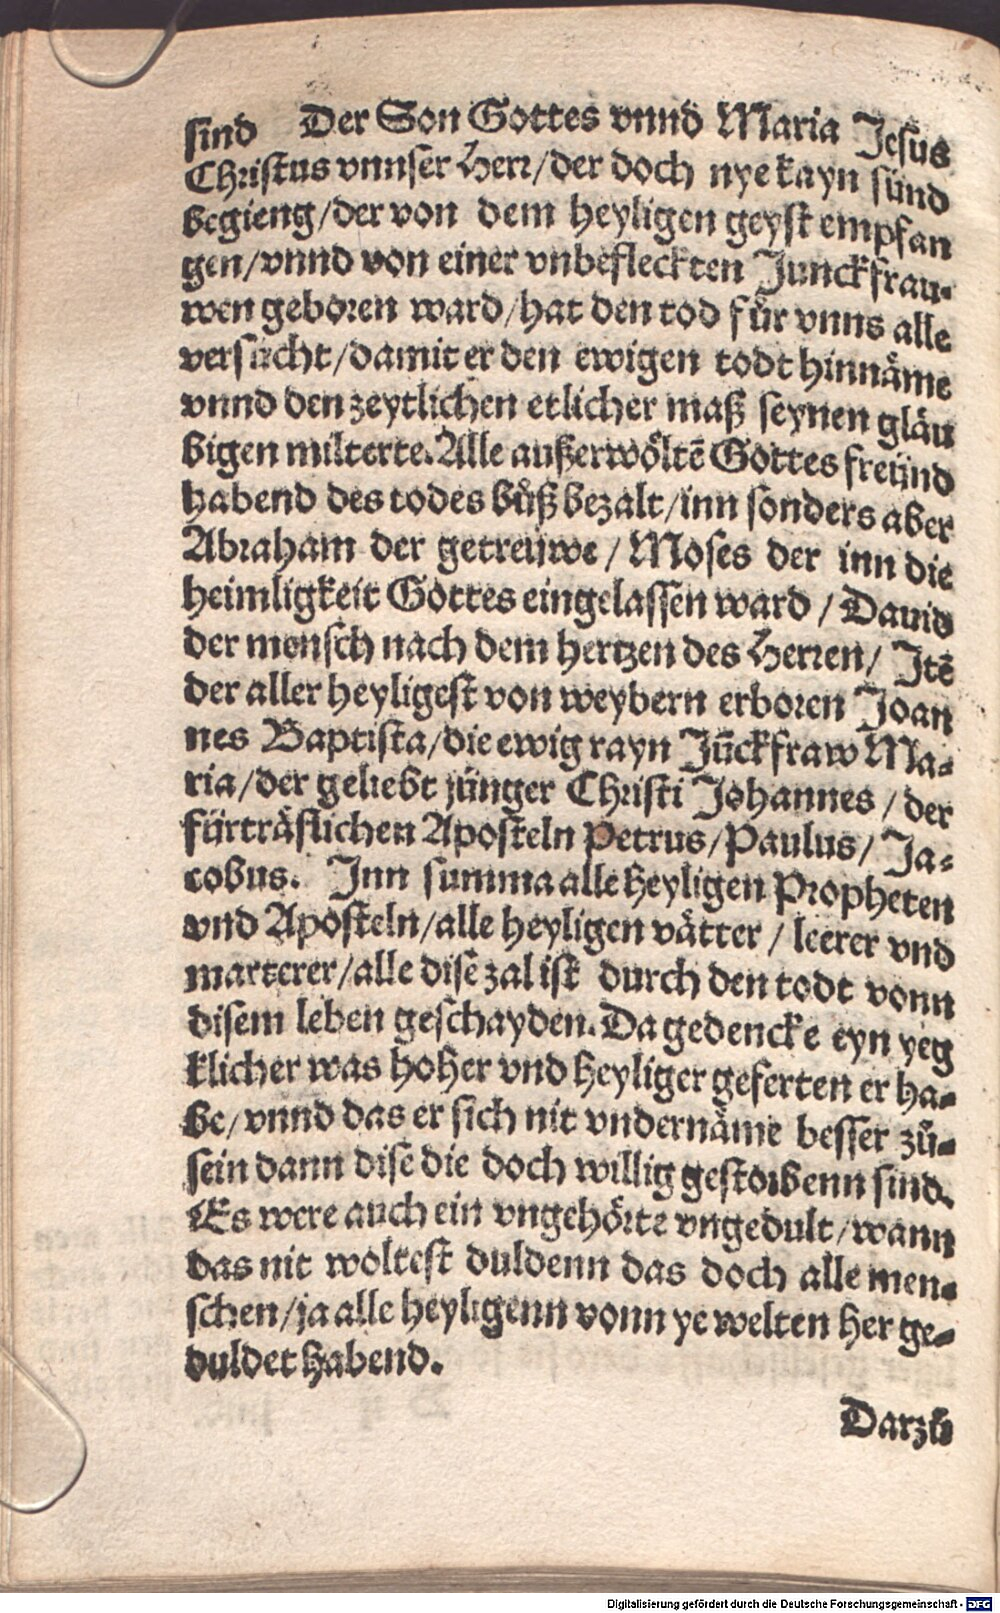 sind    Der Son Gottes vnnd Maria Jesus
Christus vnnser Herr/der doch nye kayn sünd
begieng/der von dem heyligen geyst empfan
gen/vnnd von einer vnbefleckten Junckfrau-
wen geboren ward/hat den tod für vnns alle
versůcht/damit er den ewigen todt hinnäme
vnnd den zeytlichen etlicher maß seynen gläu
bigen milterte. Alle außerwöltē Gottes freünd
habend des todes bůß bezalt/inn sonders aber
Abraham der getreüwe/Moses der inn die
heimligkeit Gottes eingelassen ward/Dauid
der mensch nach dem hertzen des Herren/Jtē
der aller heyligest von weybern erboren Joan
nes Baptista/die ewig rayn Jūckfraw Ma-
ria/der geliebt jünger Christi Johannes/der
fürträflichen Aposteln Petrus/Paulus/Ja-
cobus. Jnn summa alle heyligen Propheten
vnd Aposteln/alle heyligen vätter/leerer vnd
marterer/alle dise zal ist durch den todt vonn
disem leben geschayden. Da gedencke eyn yeg
klicher was hoher vnd heyliger geferten er ha-
be/vnnd das er sich nit vndernäme besser zů-
sein dann dise die doch willig gestorbenn sind.
Es were auch ein vngehörte vngedult/wann
das nit woltest duldenn das doch alle men-
schen/ja alle heyligenn vonn ye welten her ge-
duldet habend.
Darzů
Digitalisierung gefördert durch die Deutsche Forschungsgemeinschaft - DFG